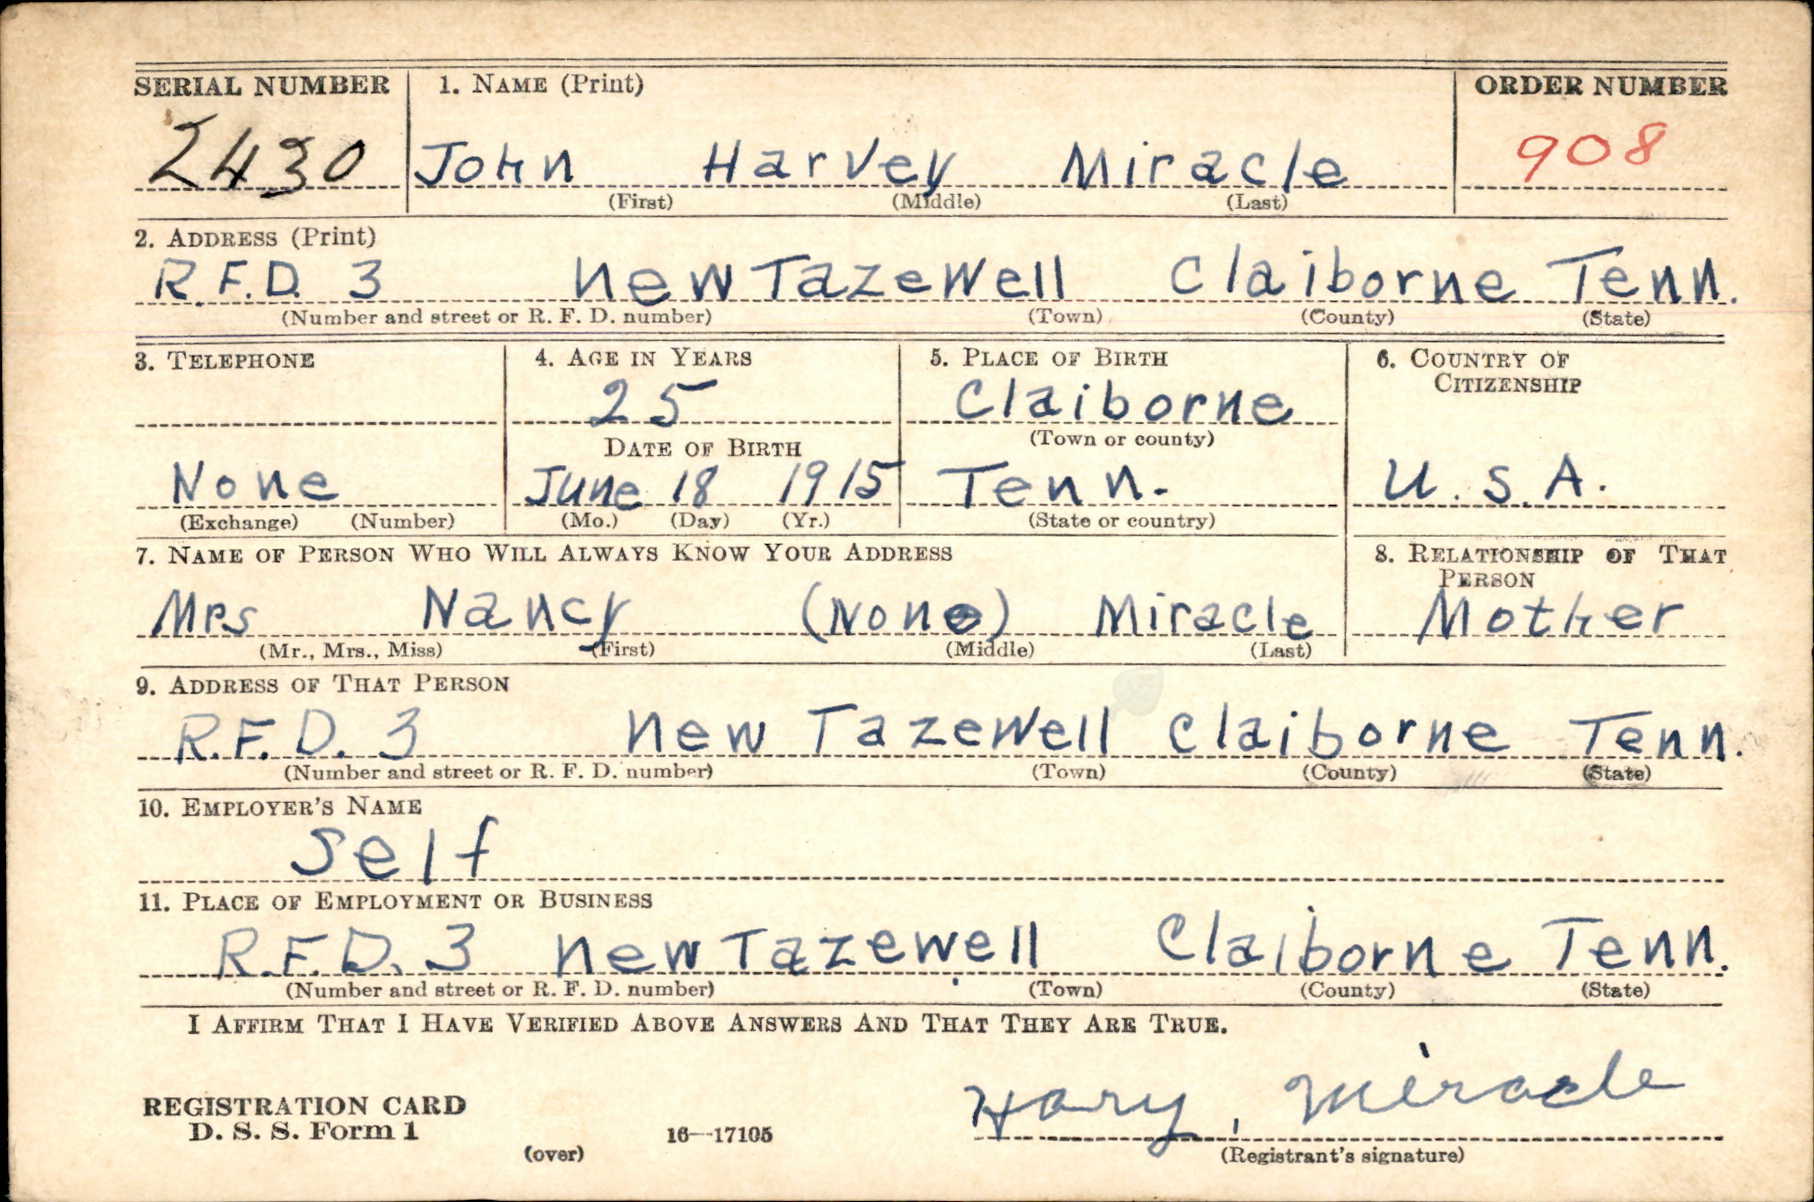 SERIAL NUMBER 1. NAME (Print) ORDER NUMBER
2430 John Harvey Miracle 908
(First) (Middle) (Last)
2. ADDRESS (Print)
R.F.D. 3 New Tazewell Claiborne Tenn.
(Number and street or R. F. D. number) (Town) (County) (State)
3. TELEPHONE 4. AGE IN YEARS 5. PLACE OF BIRTH 6. COUNTRY OF
CITIZENSHIP
25 Claiborne
DATE OF BIRTH (Town or county)
None June 18 1915 Tenn. U.S.A.
(Exchange) (Number) (Mo.) (Day) (Yr.) (State or country)
7. NAME OF PERSON WHO WILL ALWAYS KNOW YOUR ADDRESS 8. RELATIONSHIP OF THAT
PERSON
Mrs Nancy (None) Miracle Mother
(Mr., Mrs., Miss) (First) (Middle) (Last)
9. ADDRESS OF THAT PERSON
R.F.D. 3 New Tazewell Claiborne Tenn.
(Number and street or R. F. D. number) (Town) (County) (State)
10. EMPLOYER'S NAME
Self
11. PLACE OF EMPLOYMENT OR BUSINESS
R.F.D. 3 New Tazewell Claiborne Tenn.
(Number and street or R. F. D. number) (Town) (County) (State)
I AFFIRM THAT I HAVE VERIFIED ABOVE ANSWERS AND THAT THEY ARE TRUE.
Hary, Miracle
REGISTRATION CARD
D. S. S. Form 1 16—17105
(over) (Registrant's signature)